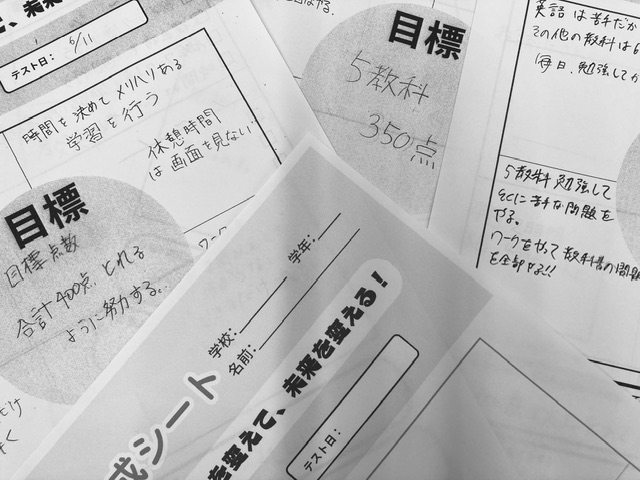 テスト日: 6/11
時間を決めてメリハリある
学習を行う
休憩時間
は画面を見ない
目標
目標点数
合計400点とれる
ように努力する。
目標
5教科
350点
英語は苦手だか
その他の教科は6
毎日、勉強してか
5教科勉強して
とくに苦手な問題を
やる。
ワークをやって教科書の問題
を全部やる!!
学年:
学校:
名前:
成シート
を変えて、未来を変える!
テスト日: